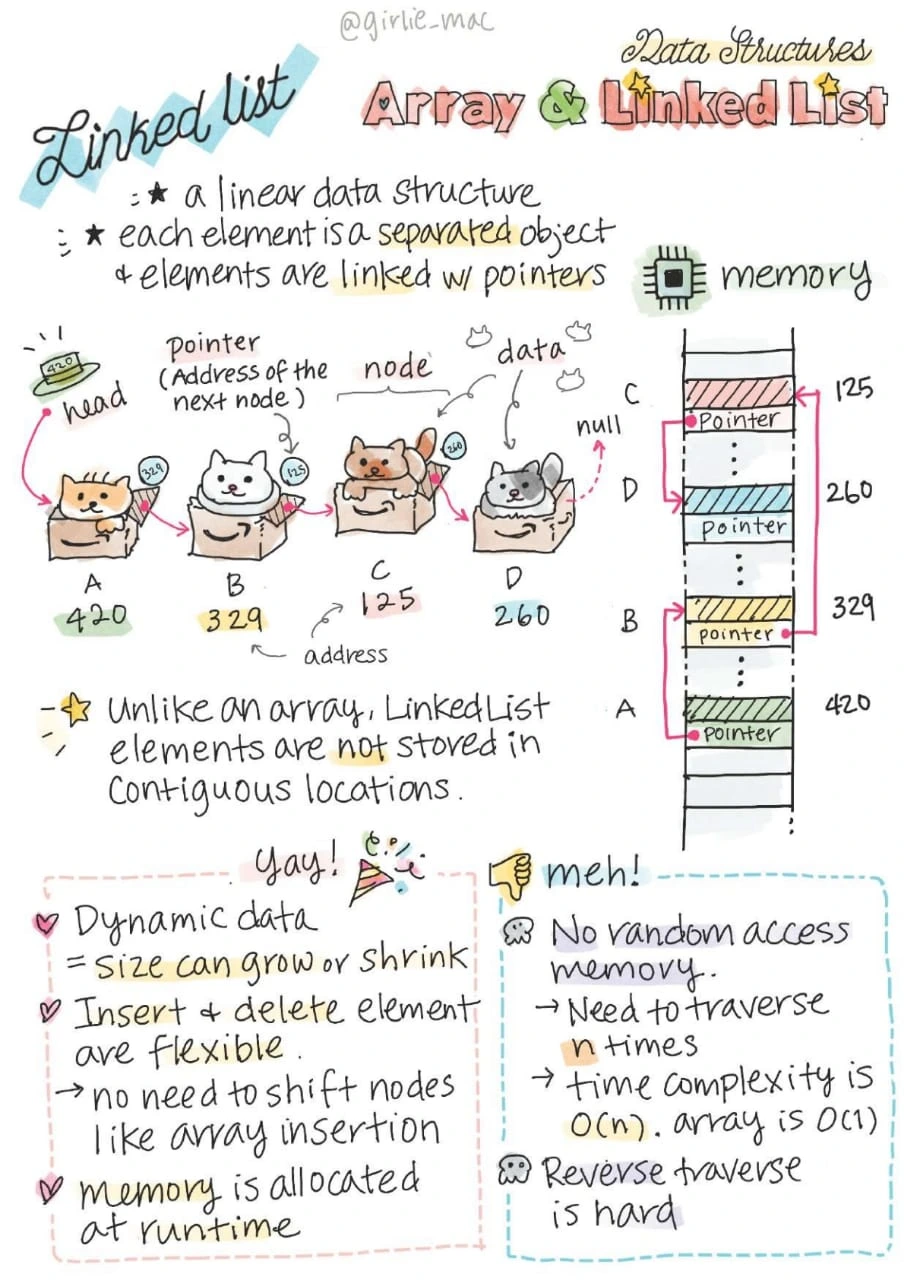 @girlie_mac
Data Structures
Array & Linked List
Linked list
a linear data structure
each element is a separated object
& elements are linked w/ pointers
memory
420
head
pointer
(Address of the
next node)
node
data
null
329
125
260
A
420
B
329
C
125
D
260
address
C
125
Pointer
D
260
pointer
B
329
pointer
A
420
pointer
Unlike an array, Linked List
elements are not stored in
contiguous locations.
Yay!
Dynamic data
= size can grow or shrink
Insert & delete element
are flexible.
→ no need to shift nodes
like array insertion
memory is allocated
at runtime
meh!
No random access
memory.
→ Need to traverse
n times
→ time complexity is
O(n). array is O(1)
Reverse traverse
is hard